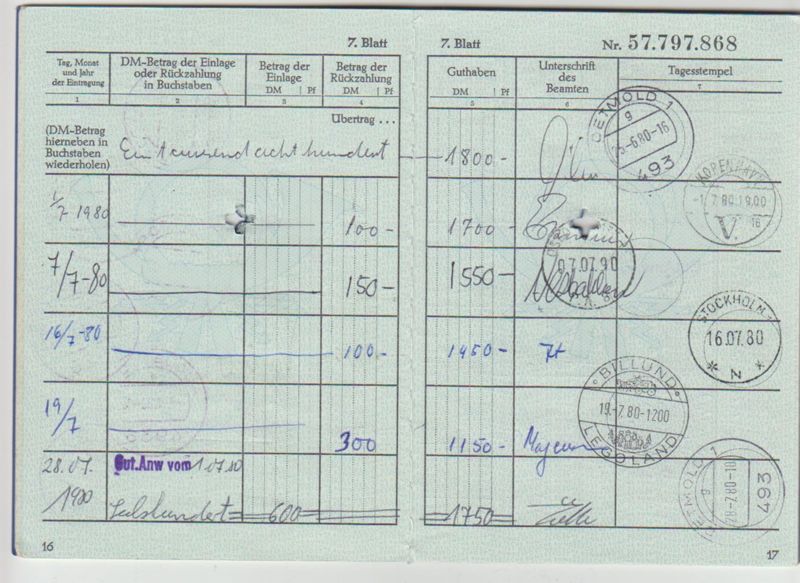 7. Blatt
Tag, Monat und Jahr der Eintragung
DM-Betrag der Einlage oder Rückzahlung in Buchstaben
Betrag der Einlage
DM | Pf
Betrag der Rückzahlung
DM | Pf
1 2 3 4
Übertrag . . .
(DM-Betrag hierneben in Buchstaben wiederholen)
Eintausendachthundert
1/7 1980 100-
7/7-80 150-
16/7-80 100.-
19/7 300
28.07. 1980 Gut.Anw vom 1.07.80
Sechshundert 600
16
7. Blatt
Nr. 57.797.868
Guthaben
DM | Pf
Unterschrift des Beamten
Tagesstempel
5 6 7
1800-
DETMOLD 1
g
-6.80-16
493
1700-
KOPENHAVN
-1.7.80.19.00
V.
16
1550-
07.07.80
1450-
STOCKHOLM
16.07.80
* N *
1150-
BILLUND
19.-7.80-1200
LEGOLAND
1750
DETMOLD 1
g
-7.80-
493
17